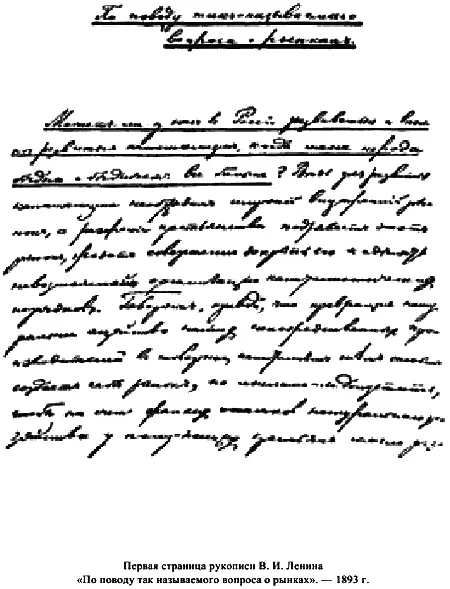 По поводу так называемого
вопроса о рынках.
Может ли у нас в России развиваться и впол-
не развиться капитализм, когда масса народа
бедна и беднеет все больше? Ведь для развития
капитализма необходим широкий внутренний ры-
нок, а разорение крестьянства подрывает этот
рынок, грозит совершенно закрыть его и сделать
невозможной организацию капиталистических
порядков. Говорят, правда, что превращая нату-
ральное хозяйство наших непосредственных про-
изводителей в товарное, капитализм тем самым
создает себе рынок, но мыслимо ли допустить,
чтобы на счет жалких остатков натурального хо-
зяйства у полунищих крестьян могло раз-
Первая страница рукописи В. И. Ленина
«По поводу так называемого вопроса о рынках». — 1893 г.